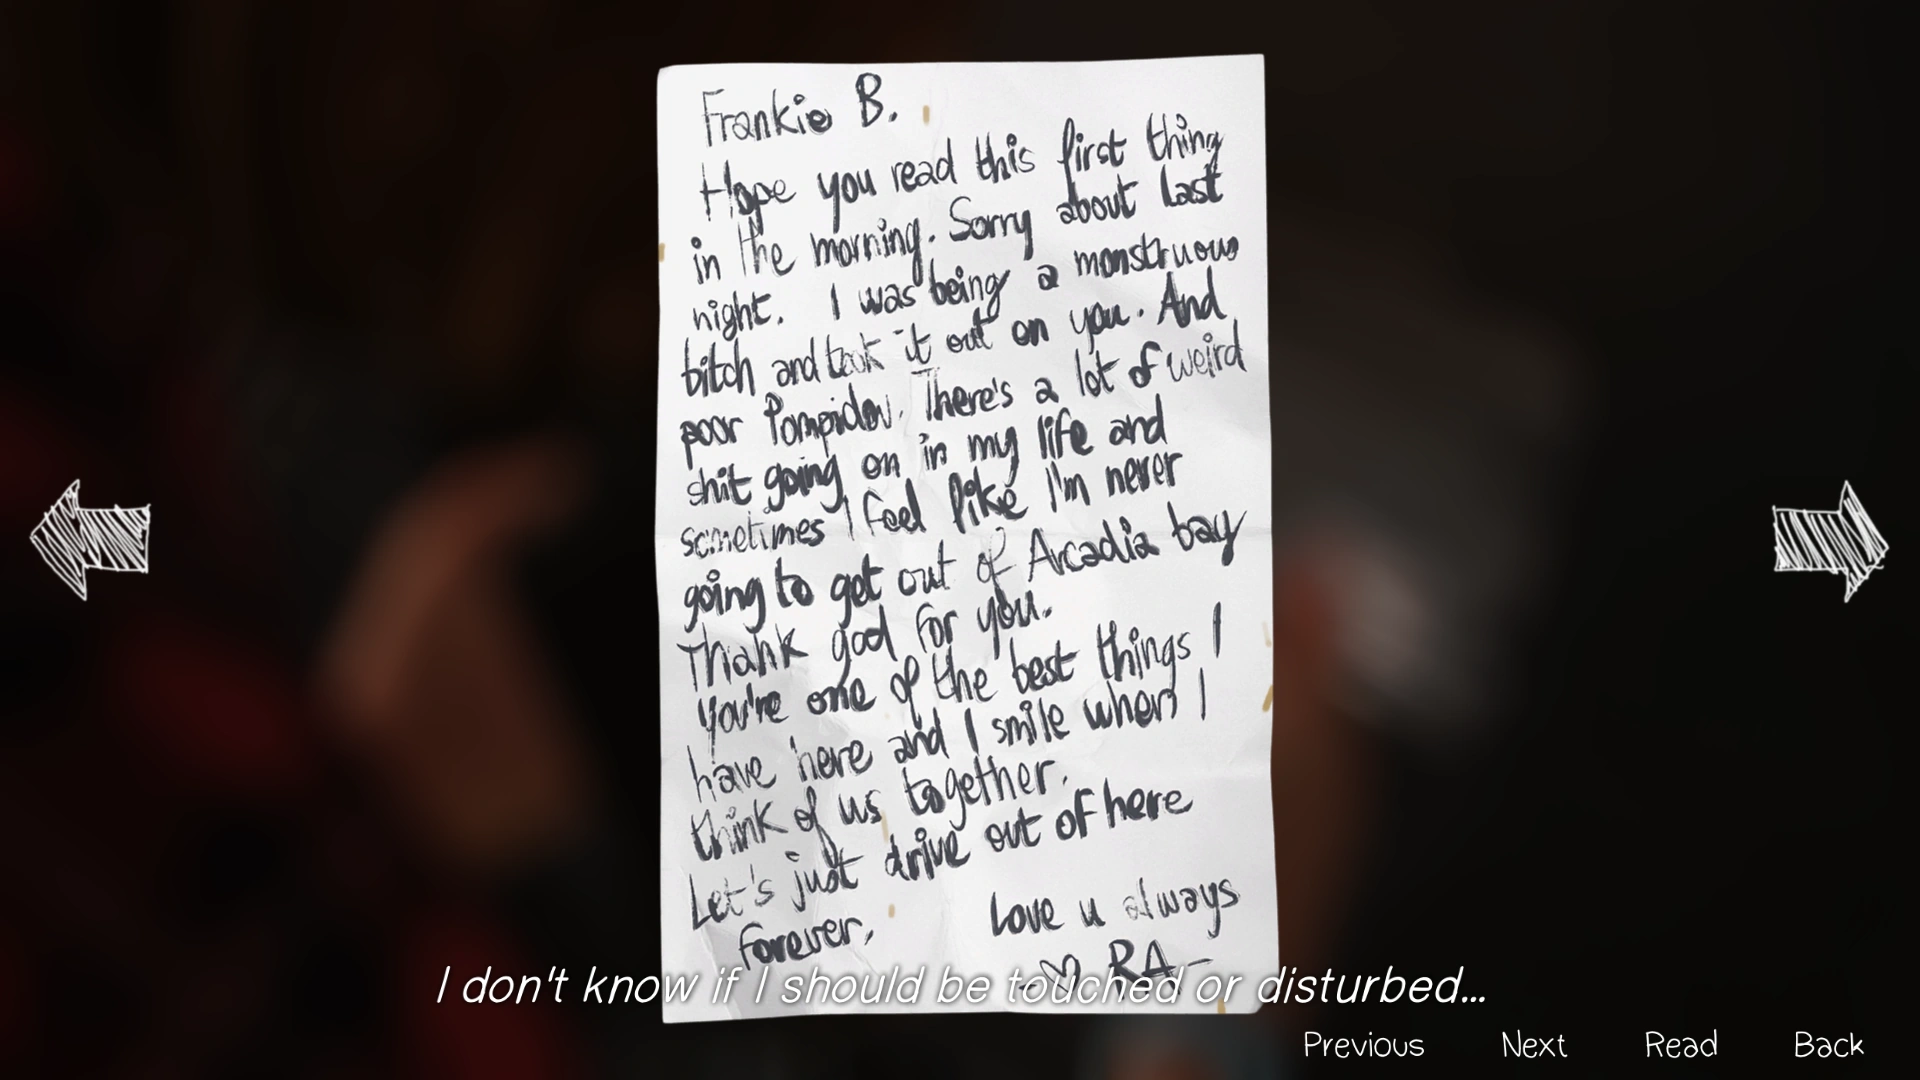 Frankie B.
Hope you read this first thing
in the morning. Sorry about last
night. I was being a monstruous
bitch and took it out on you. And
poor Pompidou. There's a lot of weird
shit going on in my life and
sometimes I feel like I'm never
going to get out of Arcadia bay
Thank god for you.
You're one of the best things I
have here and I smile when I
think of us together.
Let's just drive out of here
forever,
Love u always
-♡ RA-
I don't know if I should be touched or disturbed...
Previous Next Read Back